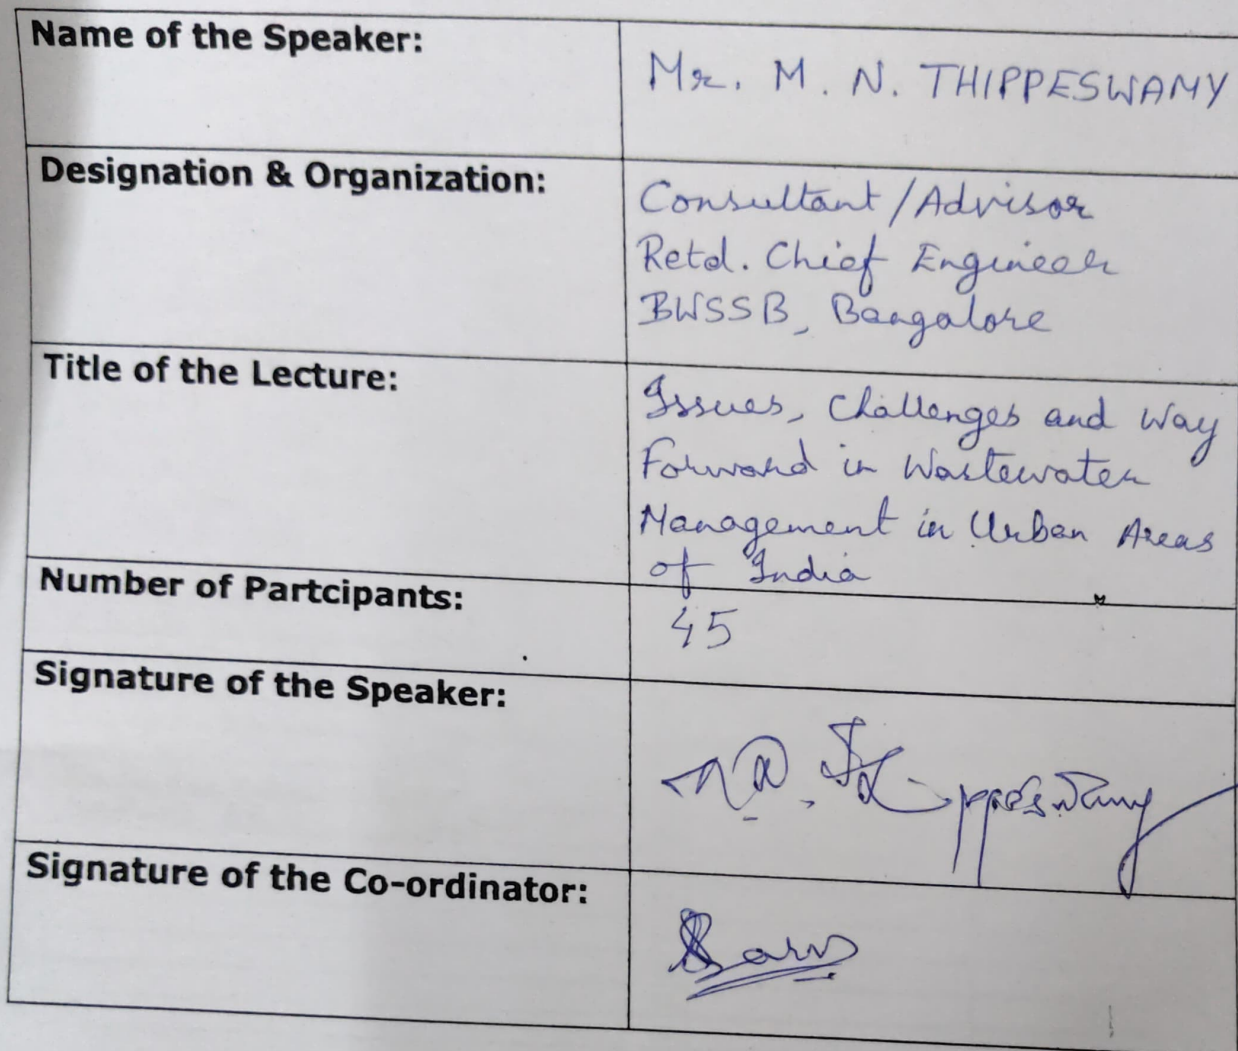 Name of the Speaker:
Mr. M. N. THIPPESWAMY
Designation & Organization:
Consultant/Advisor
Retd. Chief Engineer
BWSSB, Bangalore
Title of the Lecture:
Issues, Challenges and Way
Forward in Wastewater
Management in Urban Areas
of India
Number of Partcipants:
45
Signature of the Speaker:
Signature of the Co-ordinator: